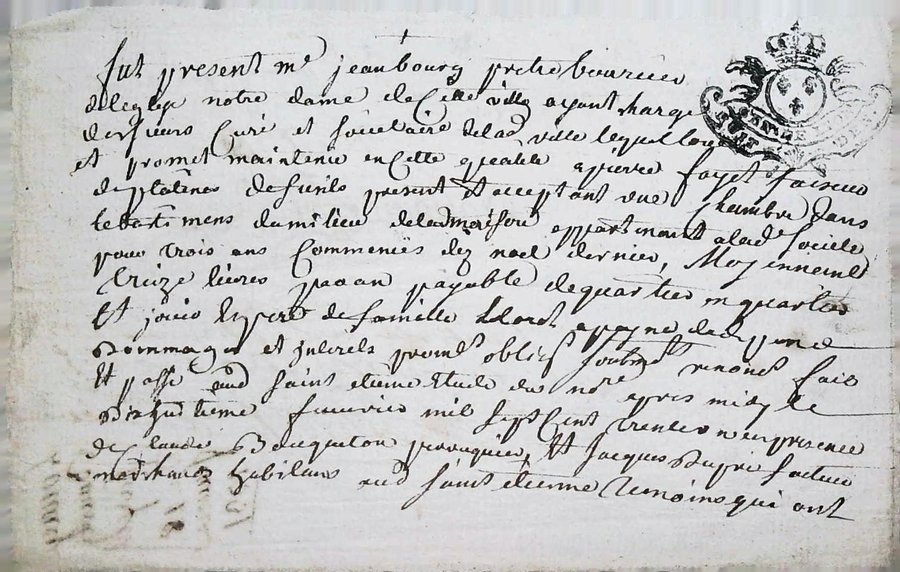 fut present mr jean bourg pretre boursier
de leglize notre dame de Cette ville ayant charge
des sieurs Curé et societaire de lad ville lequel
et promet maintenir en Cette qualité a pierre fayet faiseur
de platines de fusils present et acceptant une Chambre dans
le bastimens du milieu de lad maison appartenant a lad societé
pour trois ans Commencés dez noel dernier, Moyennent
treize livres par an payable de quartier en quartier
Et jouir en pere de famille a peyne de
dommages et interets promt obligt soubmt renont fait
Et passé aud saint etienne Etude du nore apres midy le
dixhuitieme fevrier mil sept Cent trente en presence
de Claude perruquier, Et Jacques Dupré facteur
marchand habitans aud saint etienne temoins qui ont